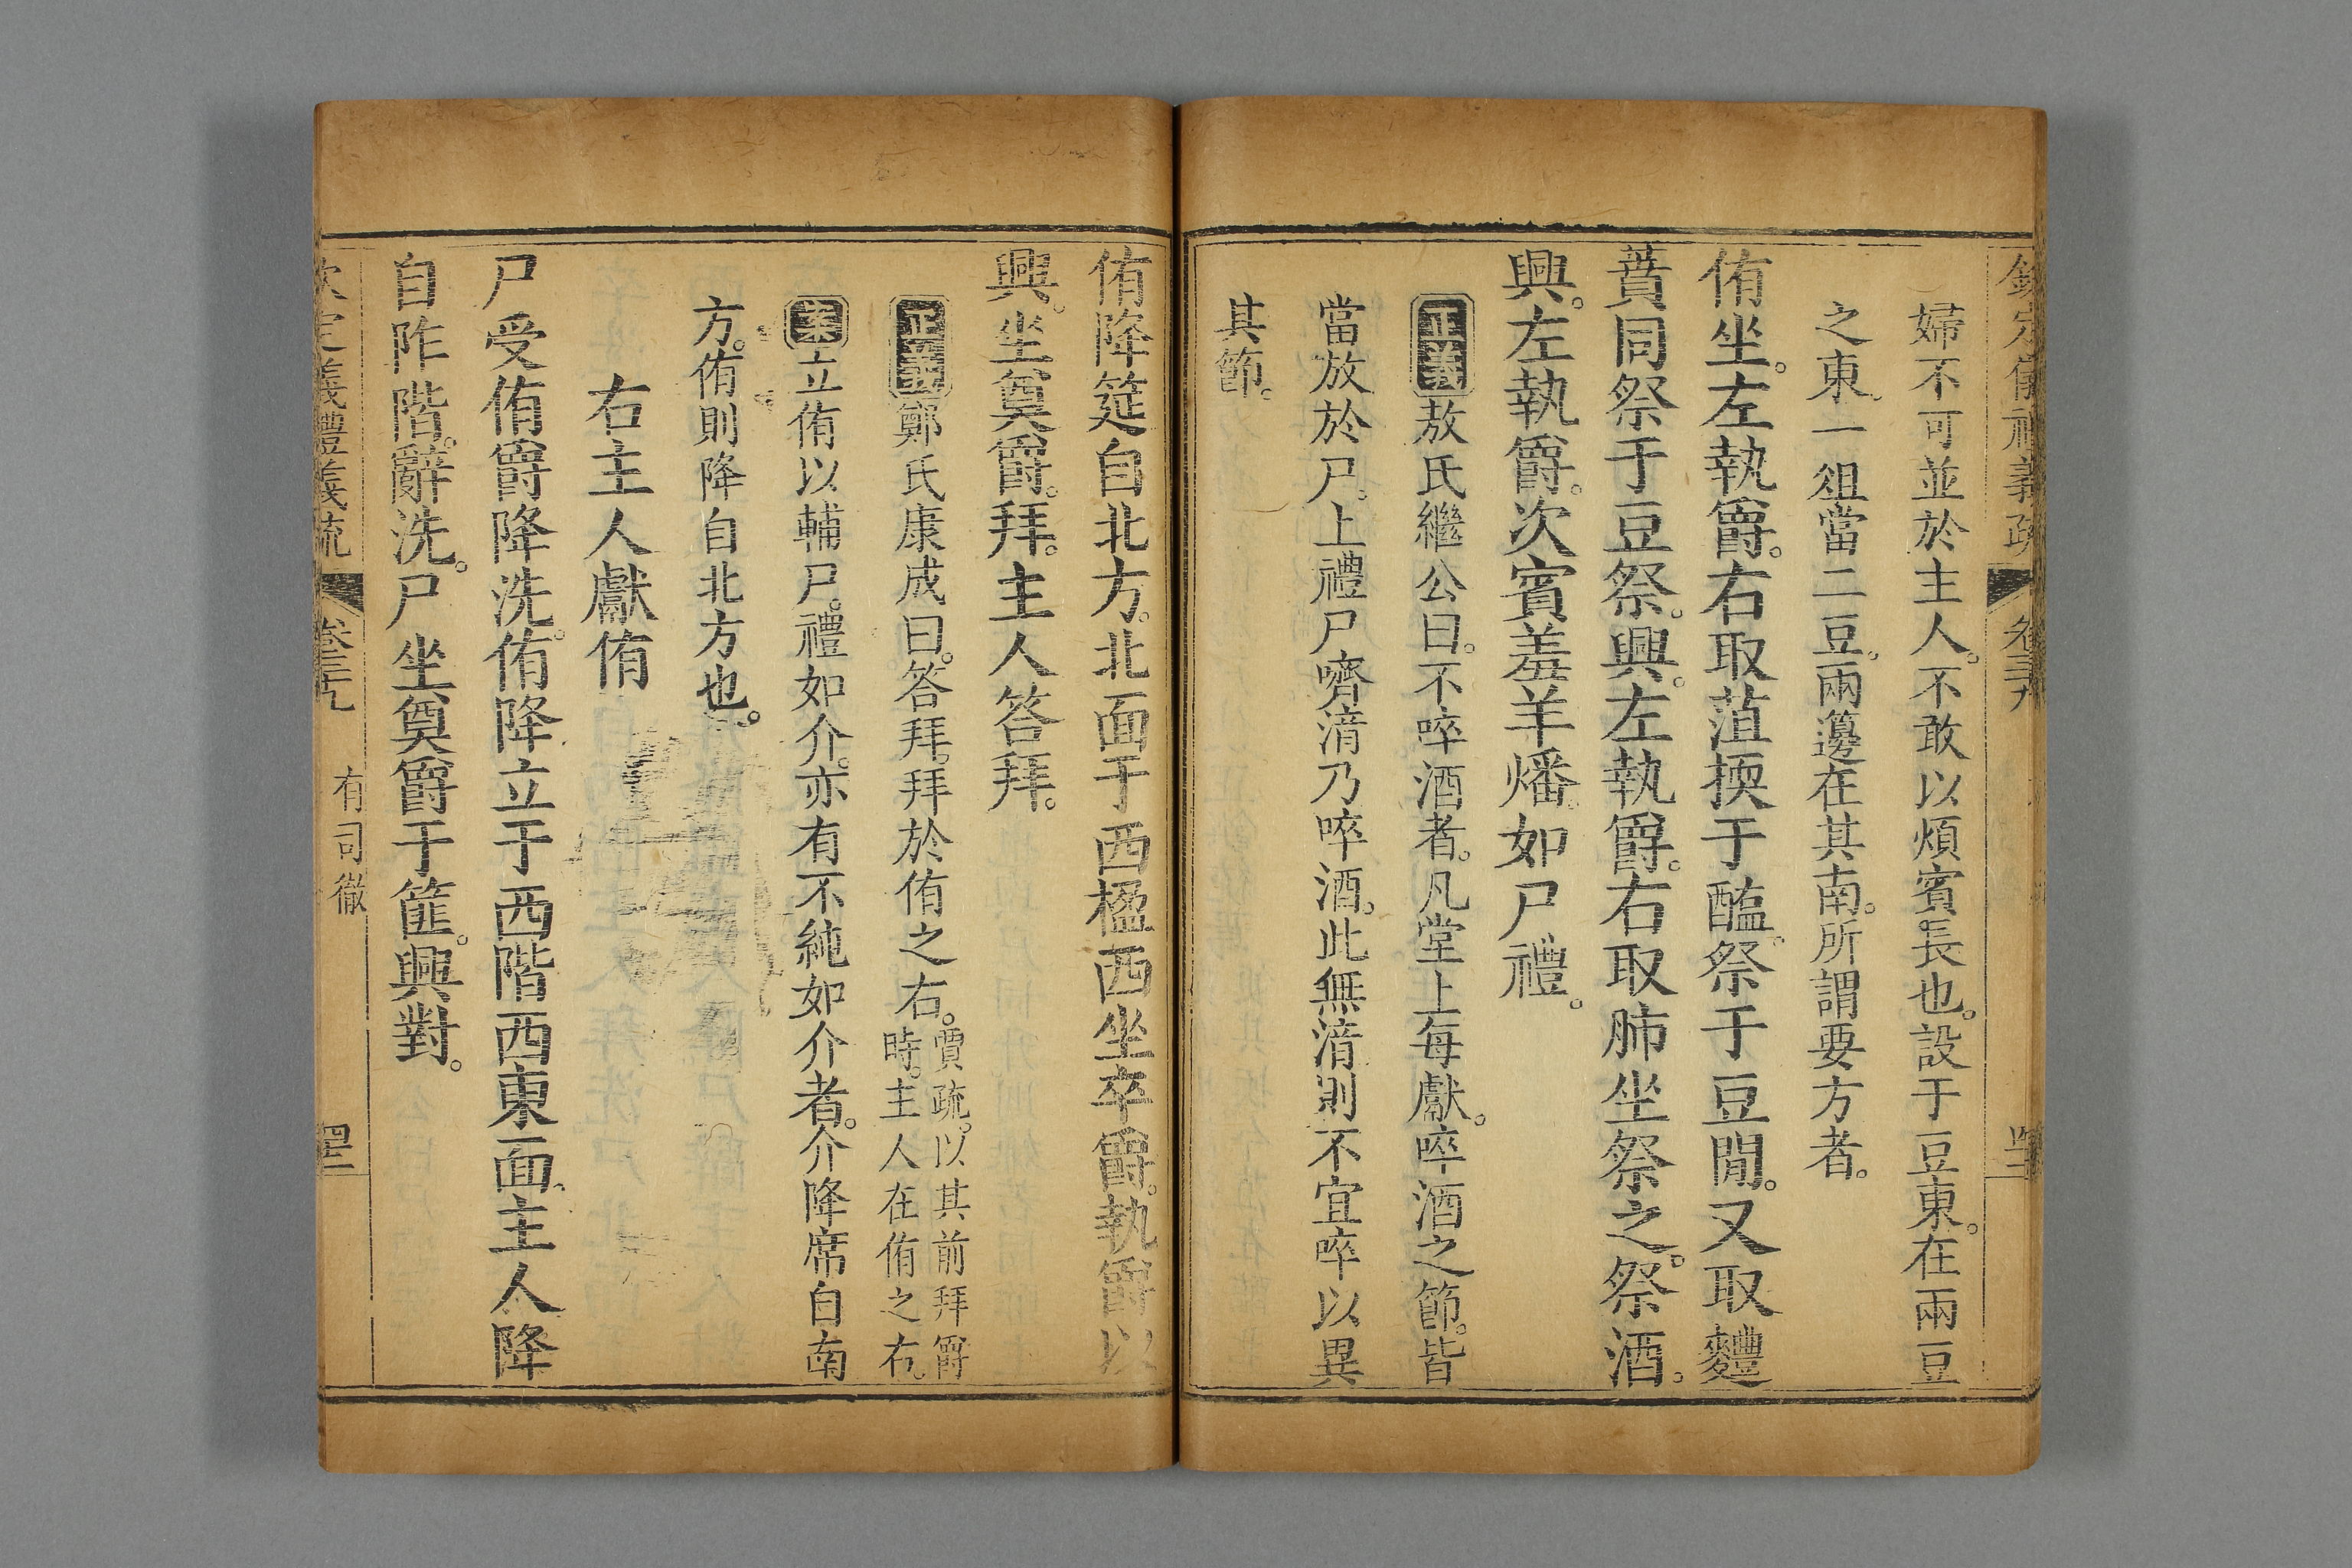 欽定儀禮義疏 卷三十九
婦不可並於主人。不敢以煩賓長也。設于豆東。在兩豆
之東。一俎當二豆。兩籩在其南。所謂要方者。
侑坐。左執爵。右取菹㨎于醢。祭于豆閒。又取麷
蕡同祭于豆祭。興。左執爵。右取肺坐祭之。祭酒。
興。左執爵。次賓羞羊燔。如尸禮。
正義敖氏繼公曰。不啐酒者。凡堂上每獻。啐酒之節。皆
當放於尸。上禮尸嚌湇乃啐酒。此無湇則不宜啐以異
其節。
侑降筵自北方。北面于西楹西坐卒爵。執爵以
興。坐奠爵。拜。主人答拜。
正義鄭氏康成曰。答拜。拜於侑之右。賈疏。以其前拜爵
時。主人在侑之右。
案立侑以輔尸。禮如介。亦有不純如介者。介降席自南
方。侑則降自北方也。
右主人獻侑
尸受侑爵降洗。侑降立于西階西東面。主人降
自阼階。辭洗。尸坐奠爵于篚。興對。
欽定義禮義疏 卷三十九 有司徹